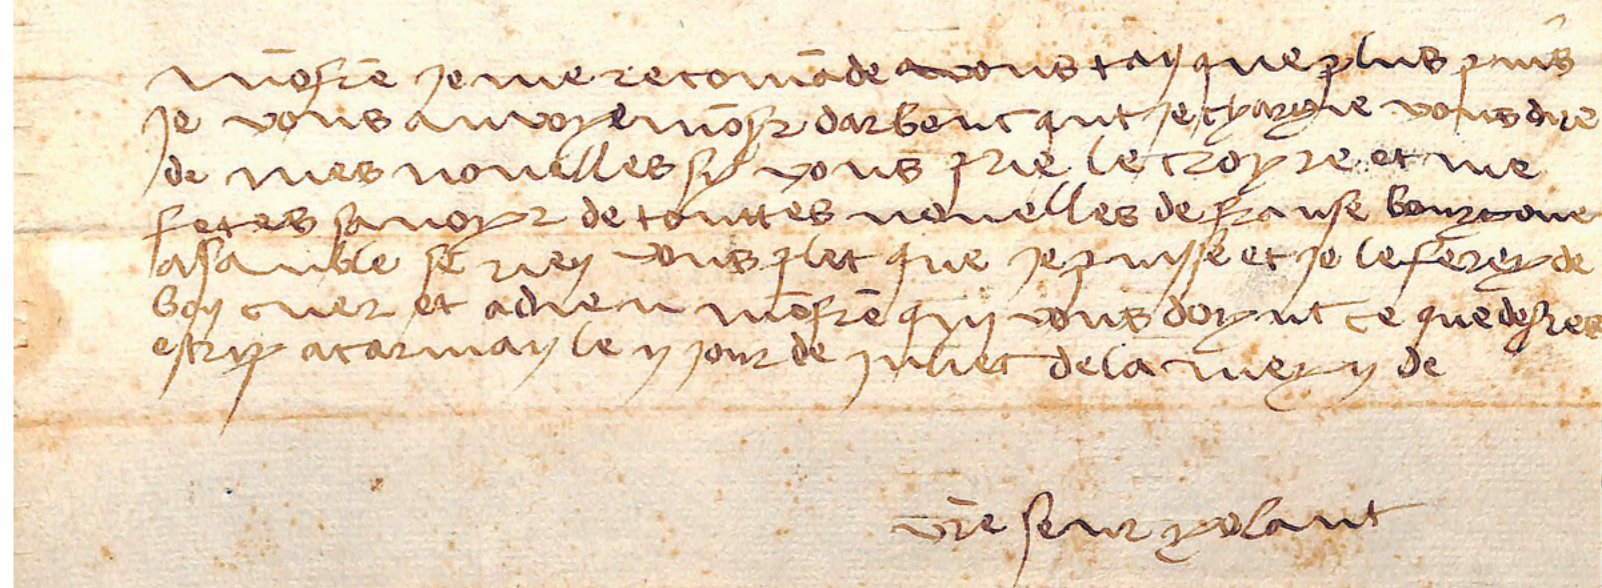 mō frē je me recomāde a vous tāt que plus puis
je vous anvoye mōsr darbent qut je charge vous dire
de mes nouelles sy vous prie le croyre et me
fetes savoyr de touttes nouelles de franse bourgone
asanble se riey vous plet que je puysse et je le ferey de
boy cuer et adieu mō frē quy vous doynt ce que desires
escryp a carmay le y jour de jullet de la mayn de
vrē seur yolant